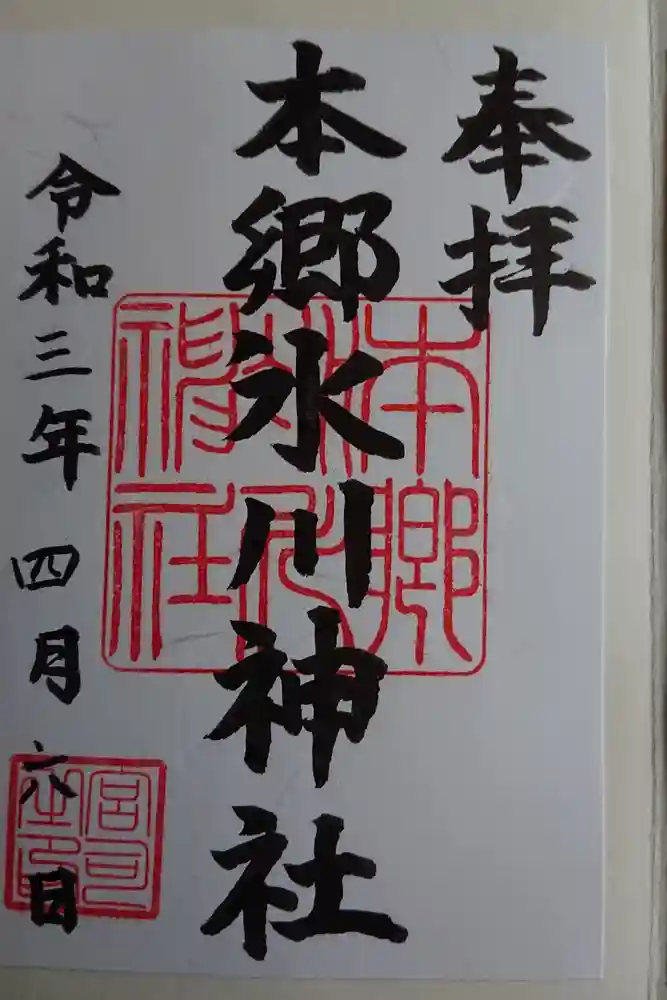 奉拝
本郷氷川神社
令和三年四月六日
本郷
氷川
神社
宮司
之印